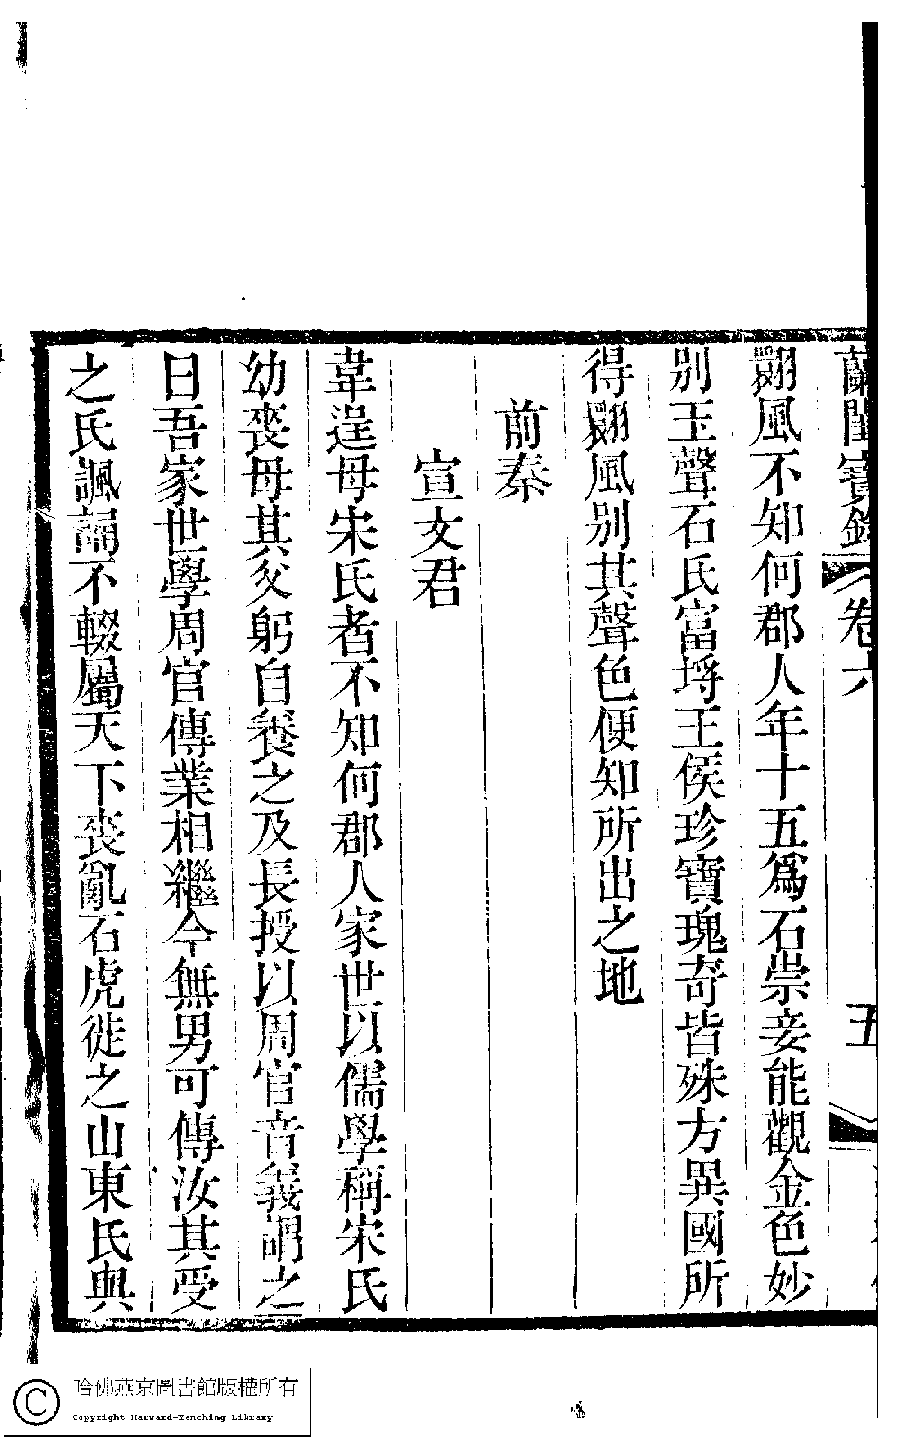 蘭閨寶錄
卷六
五
翾風不知何郡人年十五爲石崇妾能觀金色妙
別玉聲石氏富埒王侯珍寶瑰奇皆殊方異國所
得翾風別其聲色便知所出之地
前秦
宣文君
韋逞母宋氏者不知何郡人家世以儒學稱宋氏
幼喪母其父躬自養之及長授以周官音義謂之
曰吾家世學周官傳業相繼今無男可傳汝其受
之氏諷誦不輟屬天下喪亂石虎徙之山東氏與
哈佛燕京圖書館版權所有
Copyright Harvard-Yenching Library